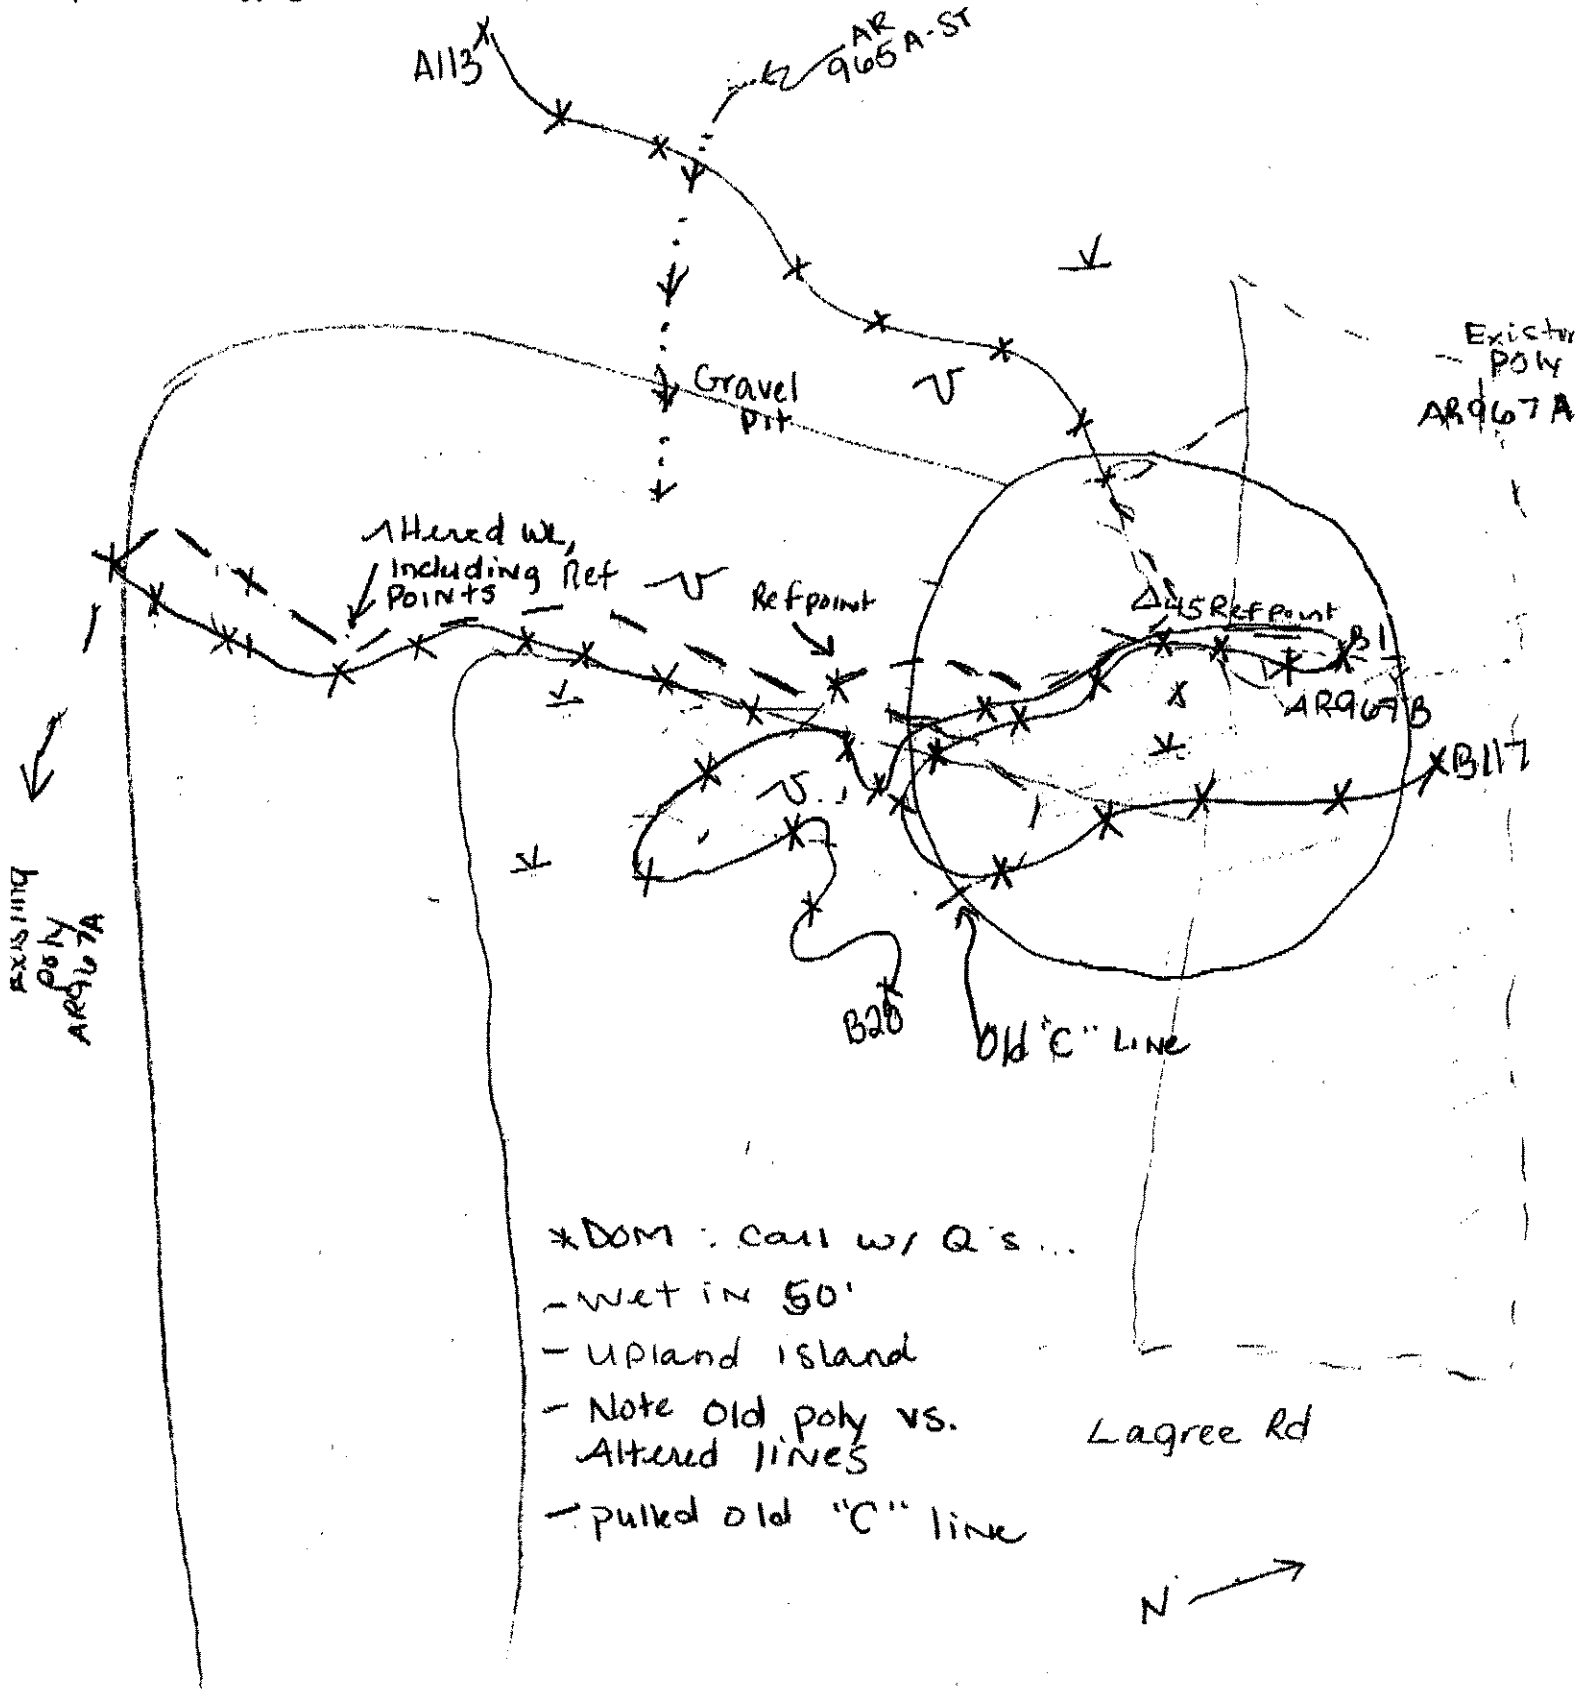 A113
AR
965A-ST
Existin
Poly
AR967A
Gravel
pit
Altered WL,
Including Ref
Points
Ref point
Δ45 Ref point
B1
AR967B
B117
Existing
poly
AR967A
B20
Old "C" Line
*DOM: Call w/ Q's...
- Wet in 50'
- Upland island
- Note old poly vs.
Altered lines
- pulled old "C" line
Lagree Rd
N